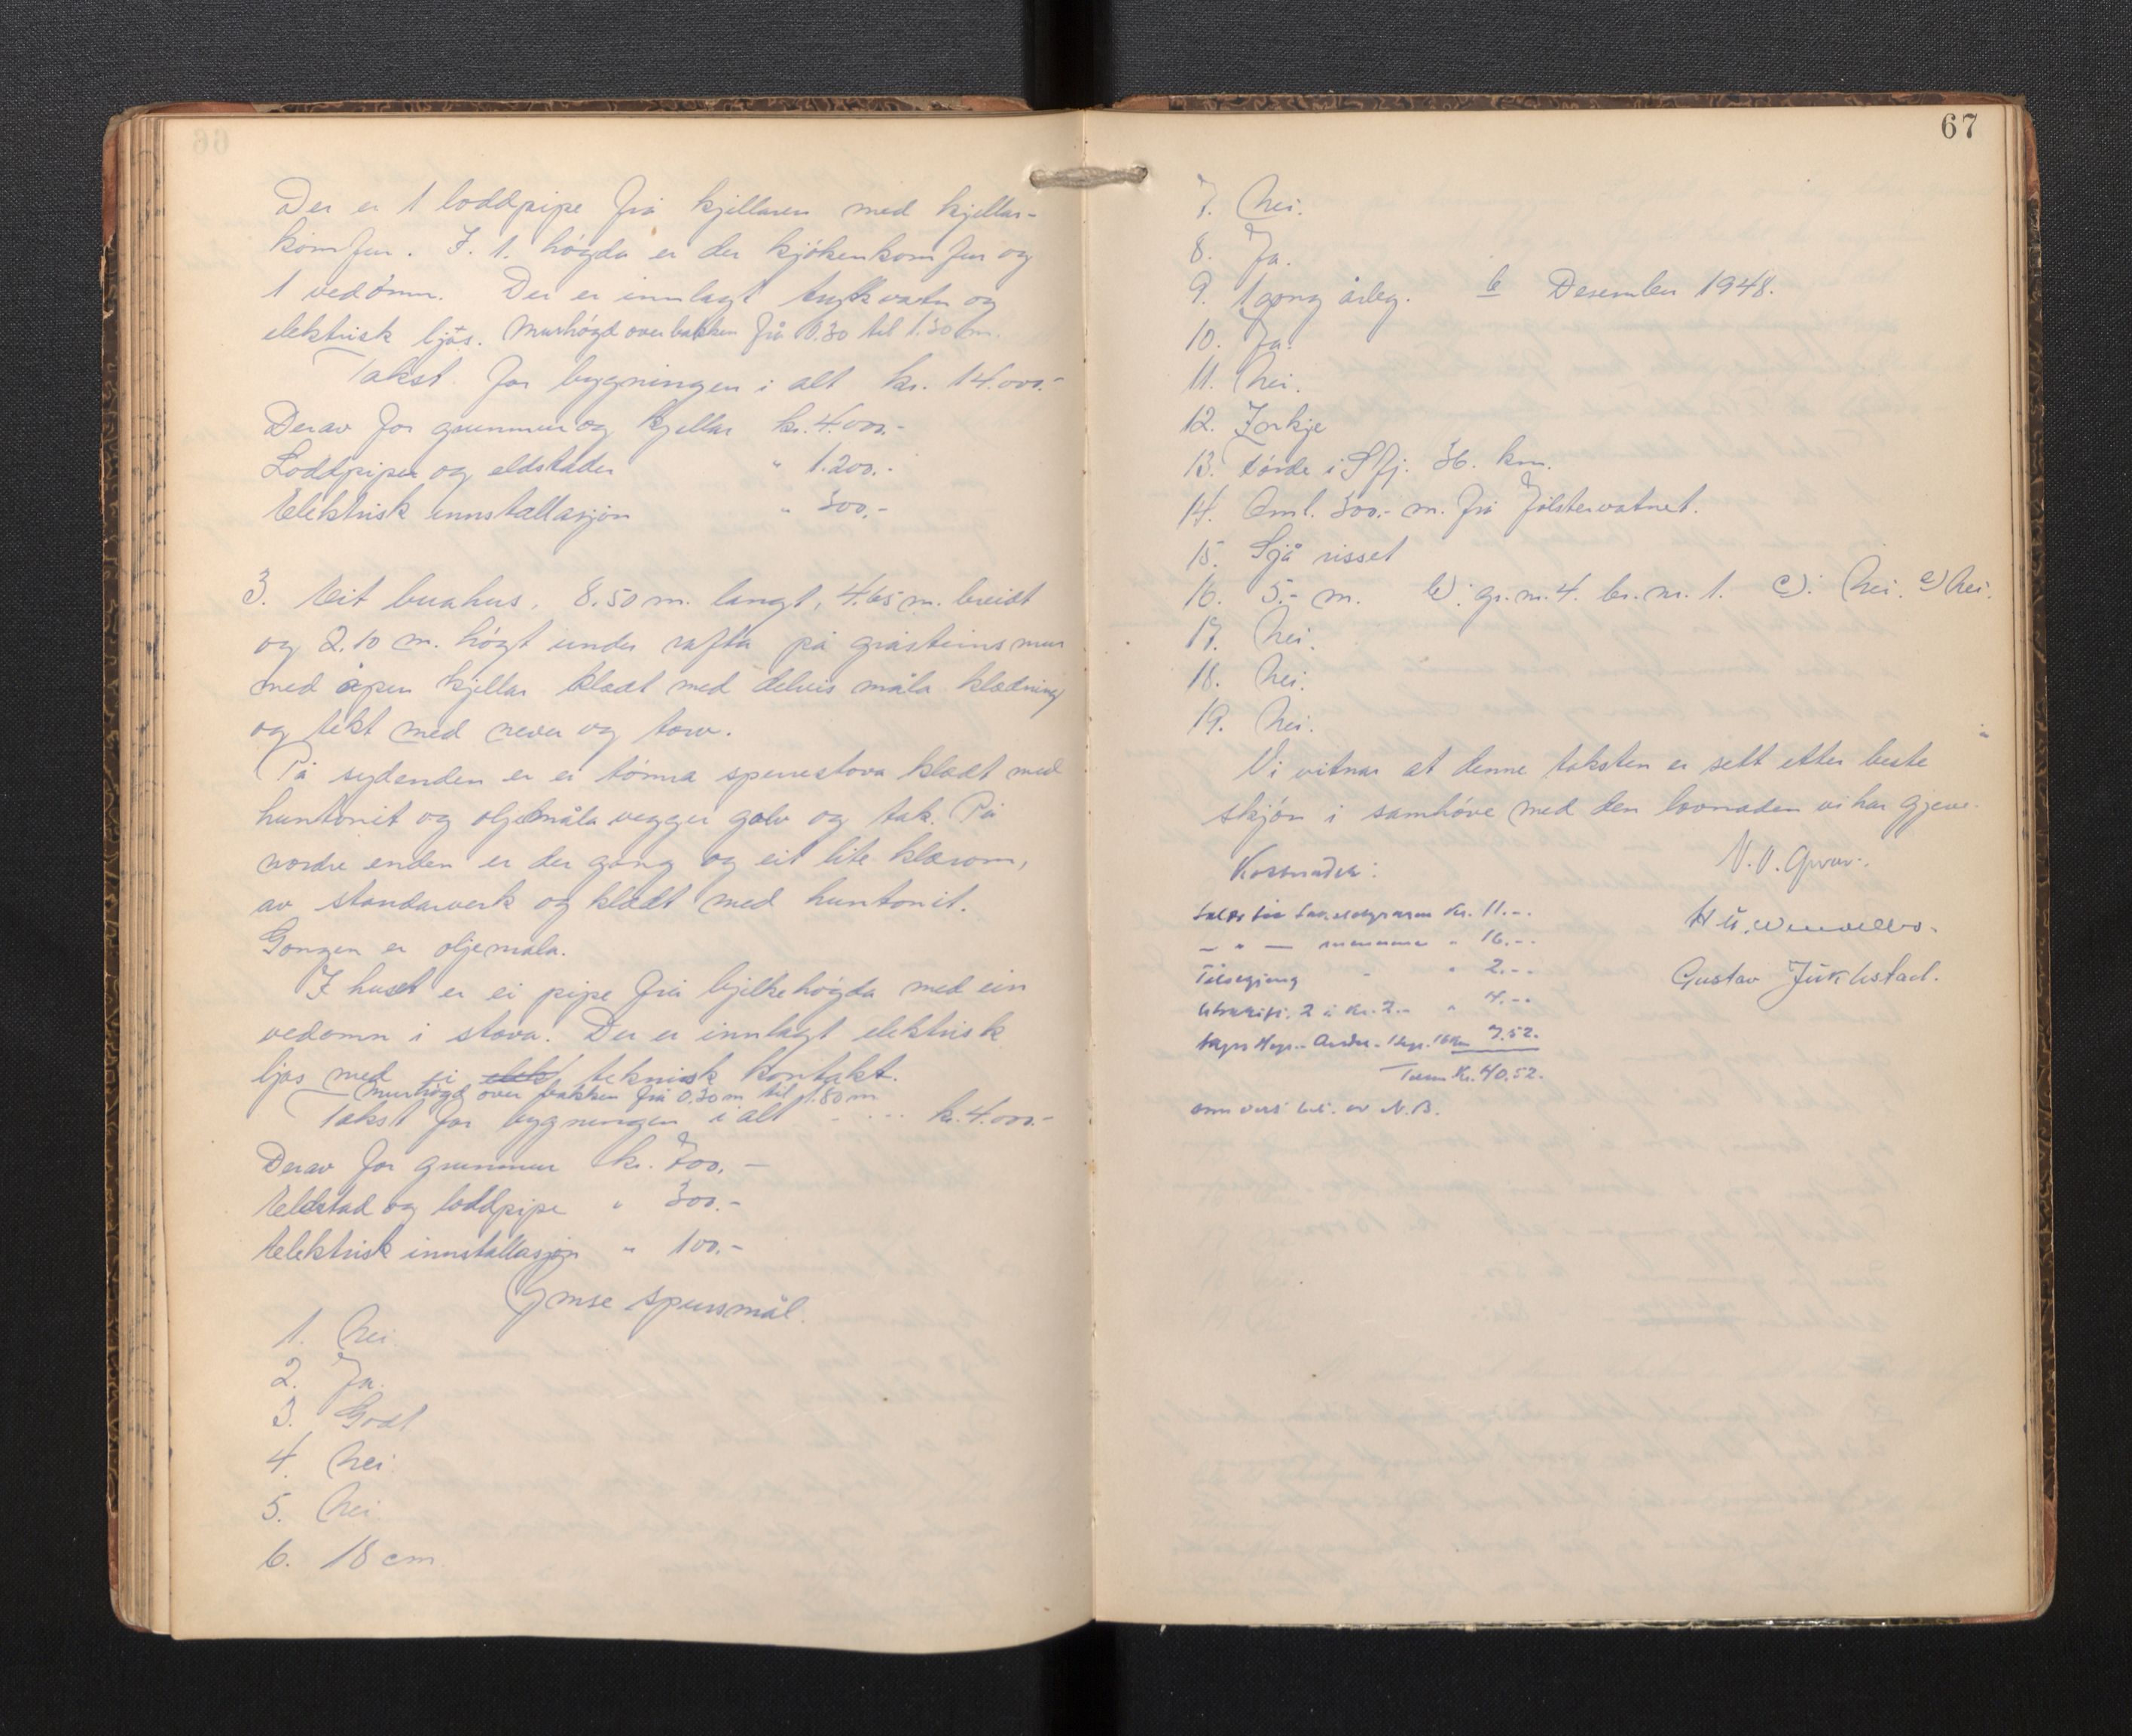 Der er 1 loddpipe frå kjellaren med kjellar-
komfur. I. 1. høgda er der kjøkenkomfur og
1 vedomn. Der er innlagt trykkvatn og
elektrisk ljos. Murhøgd over bakken frå 0.30 til 1.30 m.
Takst for bygningen i alt kr. 14.000.-
Derav for grunnmur og kjellar kr. 4.000.-
Loddpiper og eldstader " 1.200.-
Elektrisk innstallasjon " 300.-
3. Eit buahus, 8.50 m. langt, 4.65 m. breidt
og 2.10 m. høgt under rafta på gråsteinsmur
med åpen kjellar klædt med delvis måla klædning
og tekt med never og torv.
På sydenden er ei tømra sperrestova klædt med
huntonit og oljemåla vegger golv og tak. På
nordre enden er der gang og eit lite klærom,
av standarverk og klædt med huntonit.
Gongen er oljemåla.
I huset er ei pipe frå bjelkehøgda med ein
vedomn i stova. Der er innlagt elektrisk
ljos med ei elek teknisk kontakt.
Murhøgd over bakken frå 0,30 m til 1.80 m
Takst for bygningen i alt - ... kr. 4.000.-
Derav for grunnmur kr. 700.-
Eeldstad og loddpipe " 300.-
Eelektrisk innstallasjon " 100.-
Ymse spursmål.
1. Nei.
2. Ja.
3. Godt
4. Nei.
5. Nei.
6. 18 cm.
67
7. Nei.
8. Ja.
9. 1 gong årleg. b Desember 1948.
10. Ja.
11. Nei.
12. Inkje
13. Førde i Sfj. 36. km.
14. Oml. 300.- m. frå Jølstervatnet.
15. Sjå risset
16. 5.- m. b): gr. nr. 4. br. nr. 1. c): Nei. e) Nei.
17. Nei.
18. Nei.
19. Nei.
Vi vitnar at denne taksten er sett etter beste
skjøn i samhøve med den lovnaden vi har gjeve.
Kostnader:
Kr. 11.-.
- " - " 16.-.
Tilsegjing - " 2.-.
2 à Kr. 2.- " 4.-.
7.52.
Tilsam Kr. 40.52.
N.B.
Gustav